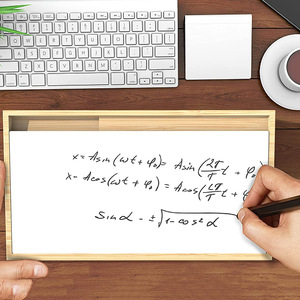 x = Asin(ωt + φ₀) = Asin(2π/T t + φ₀)
x - Acos(ωt + φ₀) = Acos(2π/T t + φ
sin α - ±√1 - cos² α